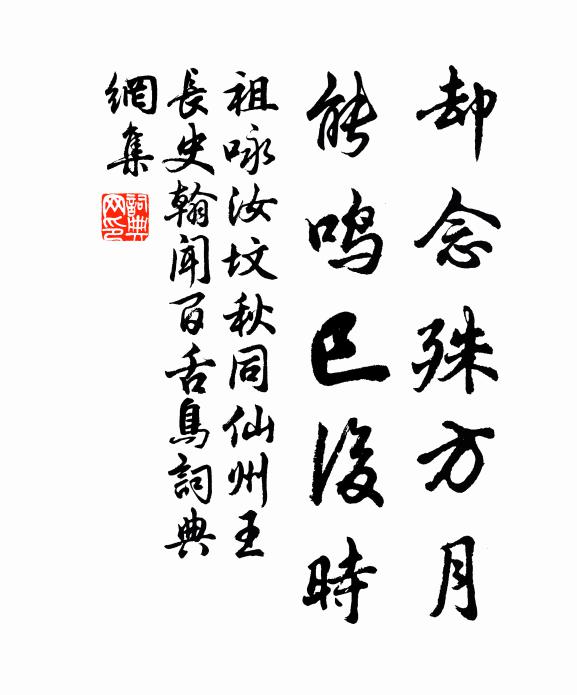 却念殊方月
能鳴已後時
祖咏汝坟秋同仙州王
長史翰闻百舌鳥詞典
網集
詞典网印